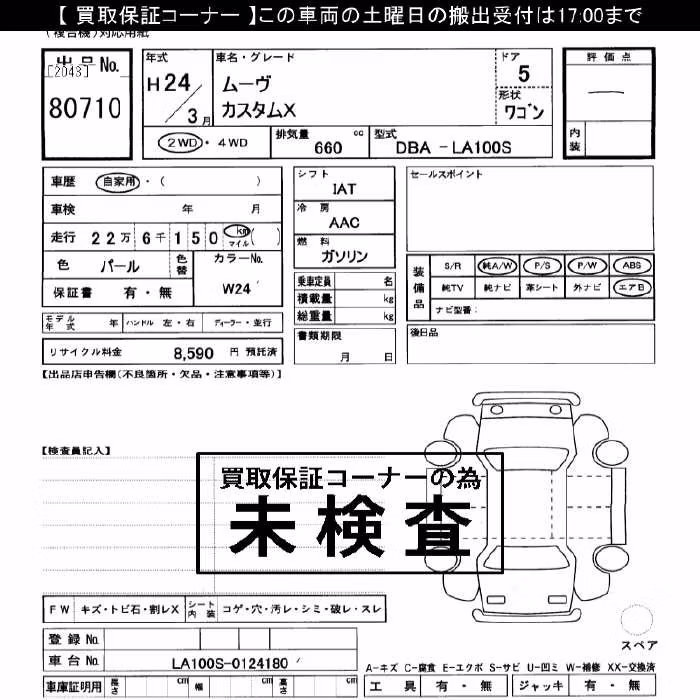 【 買取保証コーナー 】この車両の土曜日の搬出受付は17:00まで
(複合機)対応用紙
出品No.
[2043]
80710
年式
H24/3月
車名・グレード
ムーヴ
カスタムX
ドア
5
形状
ワゴン
評価点
内装
2WD・4WD
排気量 660 cc
型式 DBA - LA100S
車歴 自家用・( )
車検 年 月
走行 22万6千150 km マイル( )
色 パール 色替
カラーNo.
W24
保証書 有・無
シフト
IAT
冷房
AAC
燃料
ガソリン
乗車定員 名
積載量 kg
総重量 kg
セールスポイント
装備品
S/R 純A/W P/S P/W ABS
純TV 純ナビ 革シート 外ナビ エアB
ナビ型番:
モデル年式 年 ハンドル 左・右 ディーラー・並行
リサイクル料金 8,590 円 預託済
書類期限
月 日
後日品
【出品店申告欄(不良箇所・欠品・注意事項等)】
【検査員記入】
買取保証コーナーの為
未検査
FW キズ・トビ石・割レX シート内装 コゲ・穴・汚レ・シミ・破レ・スレ
登録No.
車台No. LA100S-0124180
車庫証明用 長さ cm 幅 cm 高さ cm
スペア
A-キズ C-腐食 E-エクボ S-サビ U-凹ミ W-補修 XX-交換済
工具 有・無 ジャッキ 有・無